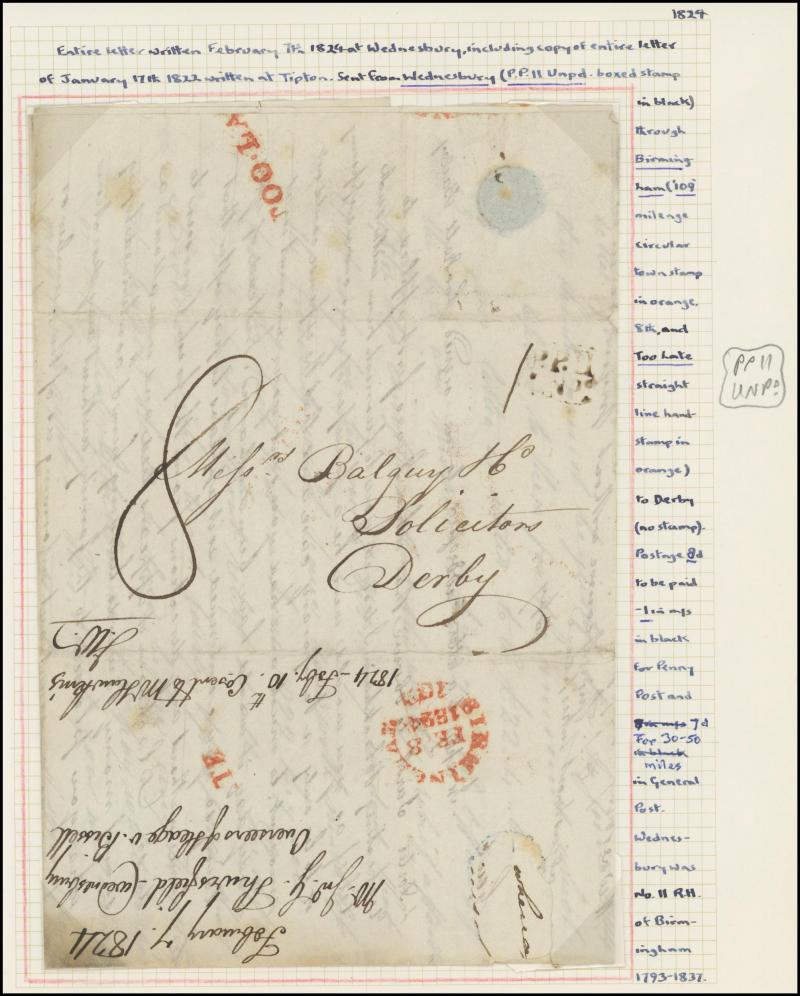 1824
Entire letter written February 7th 1824 at Wednesbury, including copy of entire letter
of January 17th 1822 written at Tipton. Sent from Wednesbury (P.P.11 Unpd. boxed stamp
in black)
through
Birming-
ham ('109'
mileage
circular
town stamp
in orange,
8th, and
Too Late
straight
line hand-
stamp in
orange)
to Derby
(no stamp).
Postage 8d
to be paid
-1 in m/s
in black
for Penny
Post and
7d
For 30-50
in black
miles
in General
Post.
Wednes-
bury was
No. 11 R.H.
of Birm-
ingham
1793-1837.
PP11
UNPD
TOO.LA
TE
1
P.P.11
8
Messrs Balguy & Co
Solicitors
Derby
BIRMINGHAM
FE 8
1824
109
February 7. 1824
Mr. Jno. G. Thursfield (Wednesbury
Overseers of Heage v. Bissell
1824 Feby. 10th
J.W.